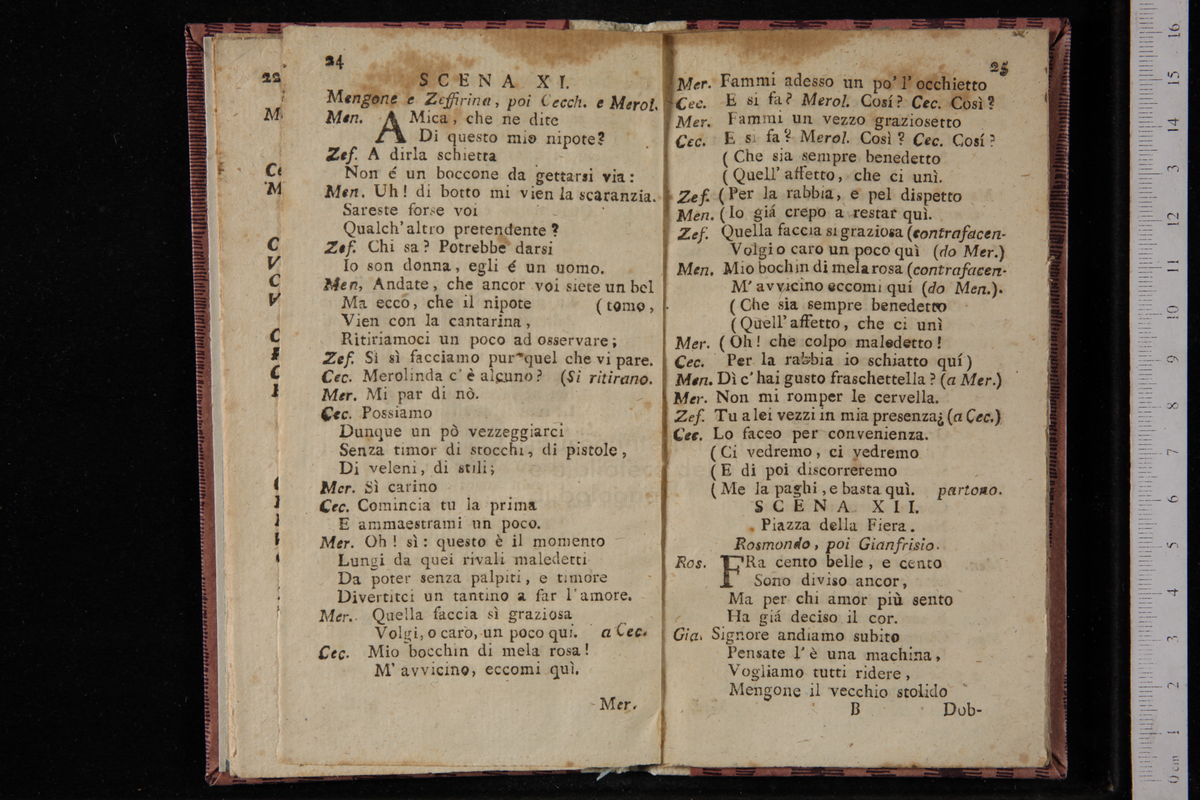 22
M
Ce
M
C
V
C
V
C
24
SCENA XI.
Mengone e Zeffirina, poi Cecch. e Merol.
Men. AMica, che ne dite
Di questo mio nipote?
Zef. A dirla schietta
Non é un boccone da gettarsi via:
Men. Uh! di botto mi vien la scaranzia.
Sareste forse voi
Qualch'altro pretendente?
Zef. Chi sa? Potrebbe darsi
Io son donna, egli é un uomo.
Men, Andate, che ancor voi siete un bel
Ma ecco, che il nipote (tomo,
Vien con la cantarina,
Ritiriamoci un poco ad osservare;
Zef. Si sì facciamo pur quel che vi pare.
Cec. Merolinda c'è alcuno? (Si ritirano.
Mer. Mi par di nò.
Cec. Possiamo
Dunque un pò vezzeggiarci
Senza timor di stocchi, di pistole,
Di veleni, di stili;
Mer. Sì carino
Cec. Comincia tu la prima
E ammaestrami un poco.
Mer. Oh! sì: questo è il momento
Lungi da quei rivali maledetti
Da poter senza palpiti, e timore
Divertirci un tantino a far l'amore.
Mer. Quella faccia sì graziosa
Volgi, o caro, un poco qui. a Cec.
Cec. Mio bocchin di mela rosa!
M' avvicino, eccomi quì.
Mer.
25
Mer. Fammi adesso un po' l' occhietto
Cec. E si fa? Merol. Cosí? Cec. Così?
Mer. Fammi un vezzo graziosetto
Cec. E si fa? Merol. Così? Cec. Cosí?
(Che sia sempre benedetto
(Quell' affetto, che ci unì.
Zef. (Per la rabbia, e pel dispetto
Men. (Io giá crepo a restar quì.
Zef. Quella faccia si graziosa (contrafacen-
Volgi o caro un poco quì (do Mer.)
Men. Mio bochin di mela rosa (contrafacen-
M' avvicino eccomi qui (do Men.).
(Che sia sempre benedetto
(Quell' affetto, che ci unì
Mer. (Oh! che colpo maledetto!
Cec. Per la rabbia io schiatto quí)
Men. Dì c' hai gusto fraschettella? (a Mer.)
Mer. Non mi romper le cervella.
Zef. Tu a lei vezzi in mia presenza¿ (a Cec.)
Cec. Lo faceo per convenienza.
(Ci vedremo, ci vedremo
(E di poi discorreremo
(Me la paghi, e basta quì. partono.
SCENA XII.
Piazza della Fiera.
Rosmondo, poi Gianfrisio.
Ros. FRa cento belle, e cento
Sono diviso ancor,
Ma per chi amor più sento
Ha giá deciso il cor.
Gia. Signore andiamo subito
Pensate l' è una machina,
Vogliamo tutti ridere,
Mengone il vecchio stolido
B Dob-
0 cm 1 2 3 4 5 6 7 8 9 10 11 12 13 14 15 16